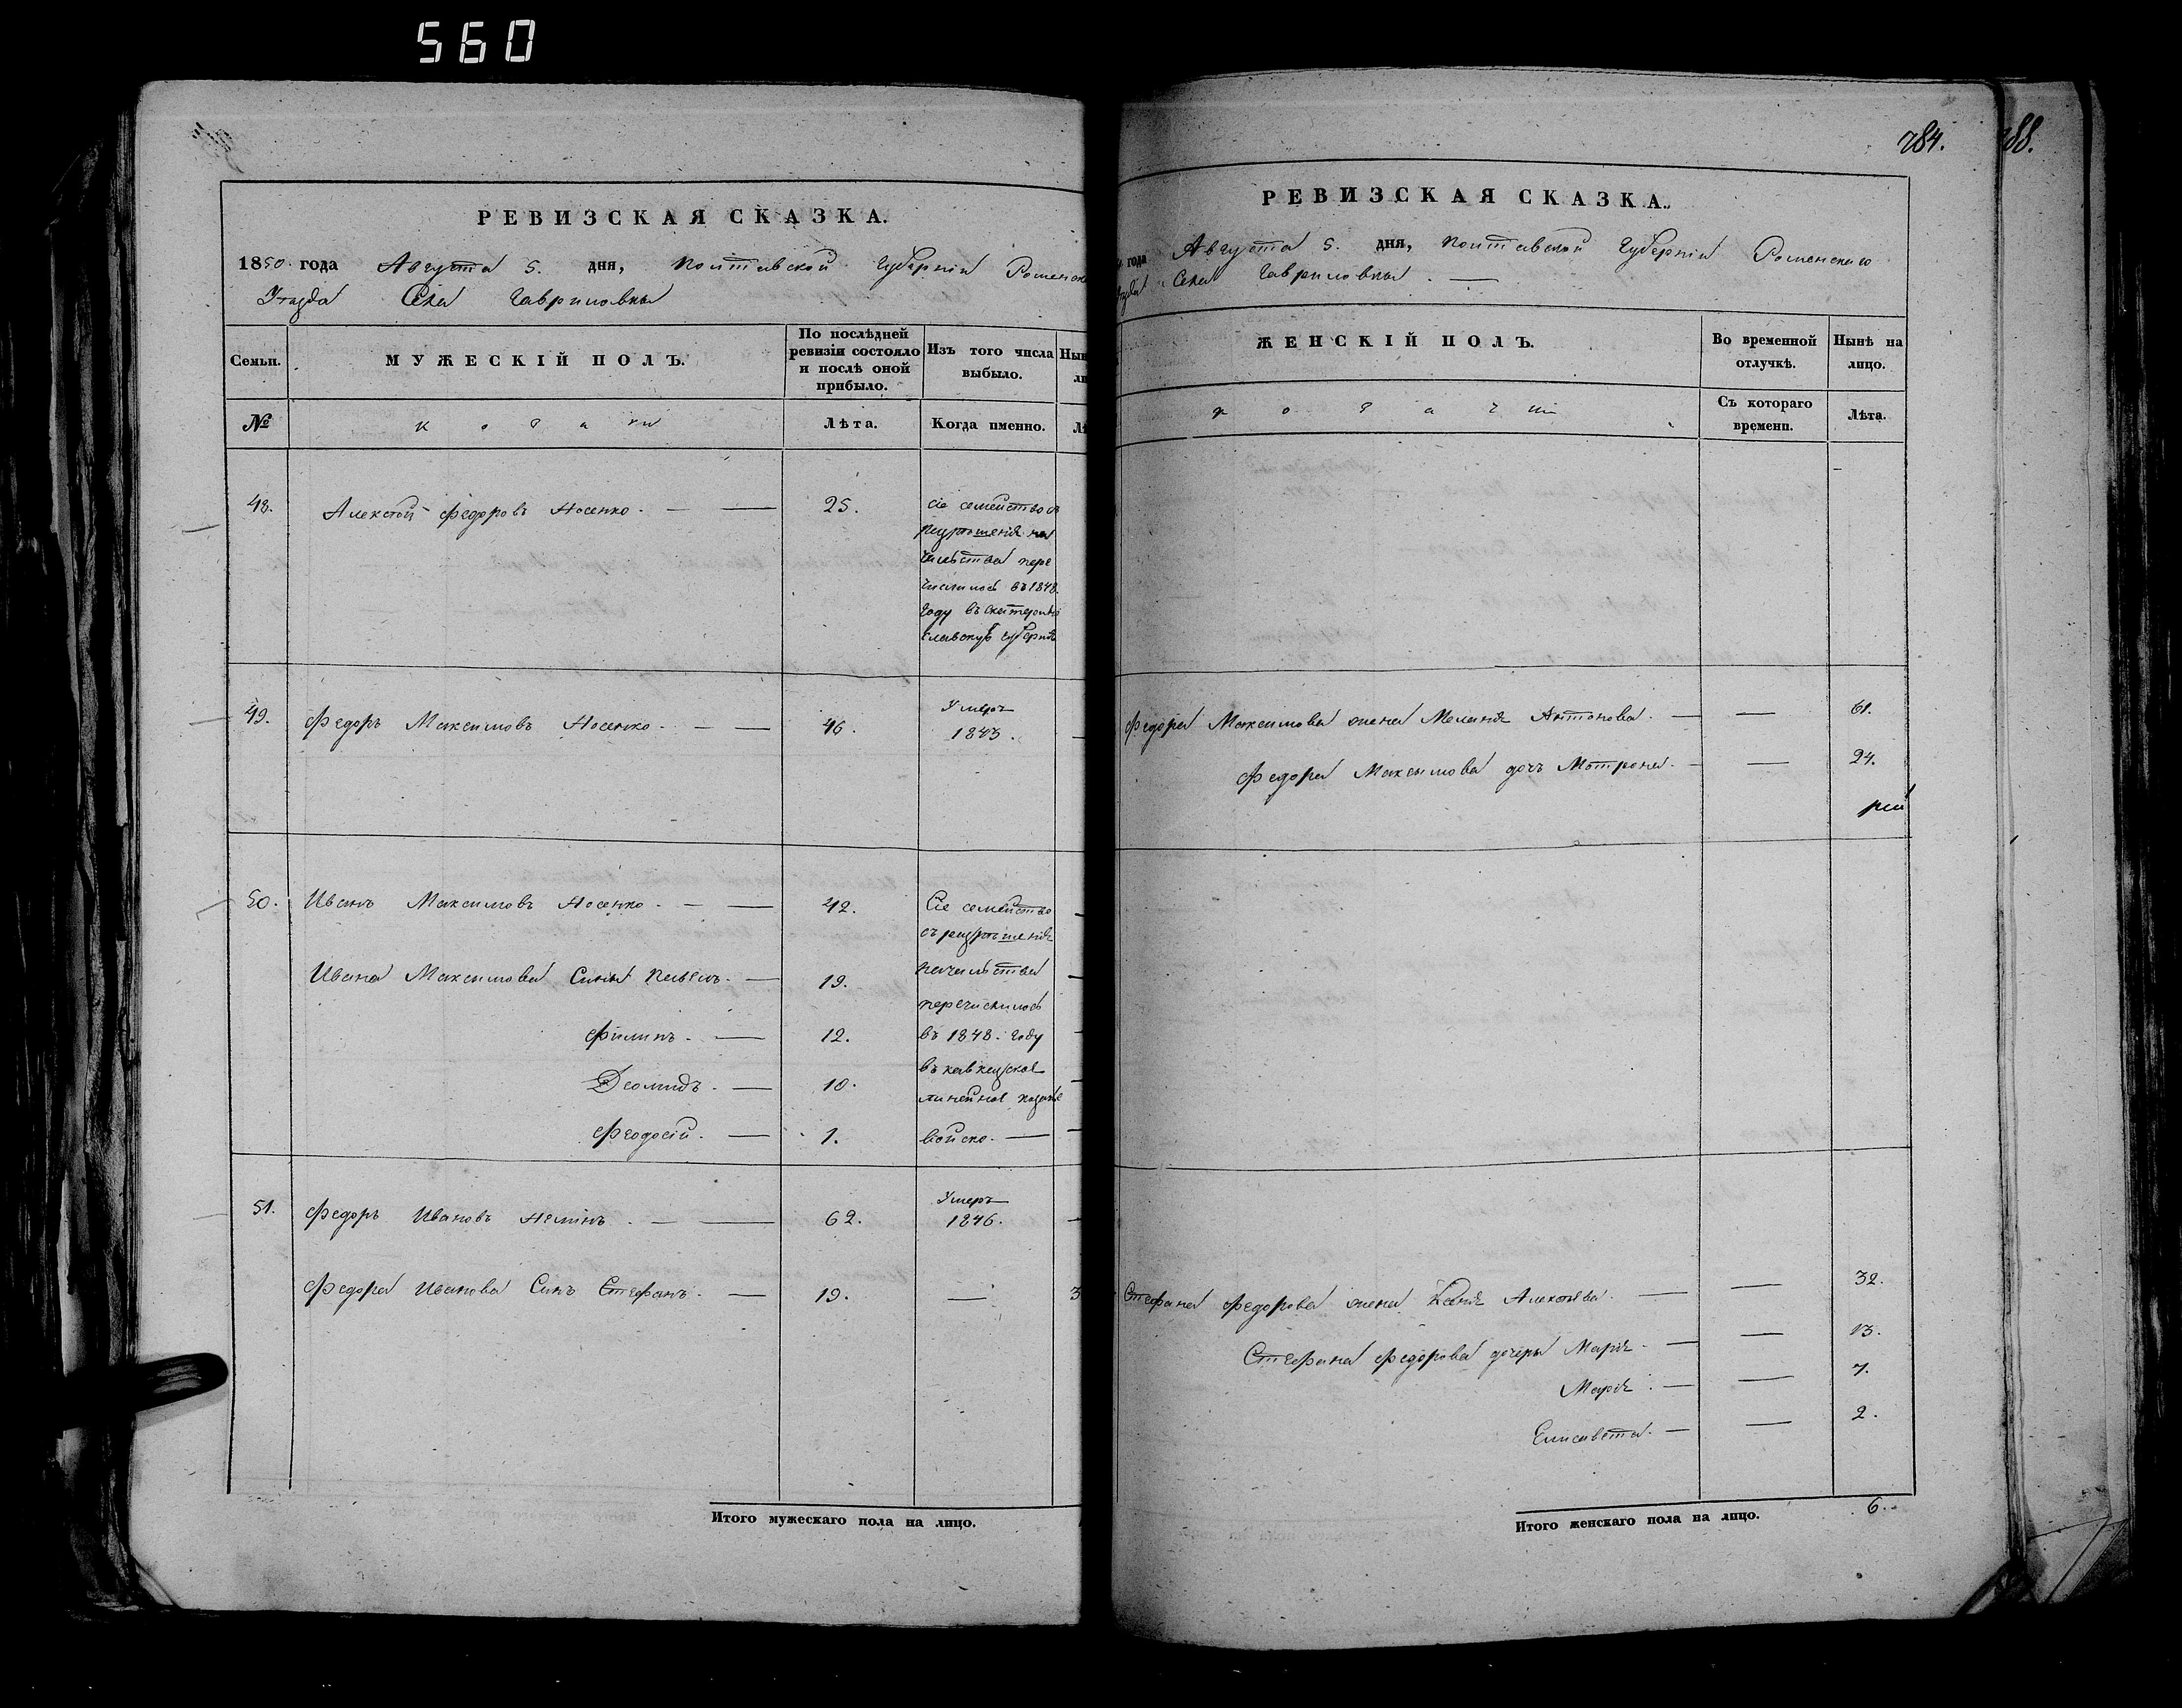 560
РЕВИЗСКАЯ СКАЗКА.
1850. года Августа 5. дня, Полтавской Губерніи Роменска
Уезда Села Гавриловки
Семьи.
МУЖЕСКІЙ ПОЛЪ.
По послѣдней ревизіи состояло и послѣ оной прибыло.
Изъ того числа выбыло.
№
козаки
Лѣта.
Когда именно.
48. Алексѣй Федоровъ Носенко. — — 25.
сіе семейство съ
разрѣшенія на
чальства пере
числилось въ 1848.
году въ Екатерино
славскую губернію
49. Федоръ Максимовъ Носенко. — — 46.
Умеръ
1843.
50. Иванъ Максимовъ Носенко. — — 42.
Сіе семейство
съ разрѣшенія
Ивана Максимова Сины Павелъ. — 19.
начальства
перечислилось
Филипъ. — 12.
въ 1848. году
въ кавказское
Деомидъ. — 10.
линейное козачье
Феодосій. — 1.
войско. —
51. Федоръ Ивановъ — — 62.
Умеръ
1846.
Федора Иванова Синъ Стефанъ. — 19. — 3
Итого мужескаго пола на лицо.
284.
288.
РЕВИЗСКАЯ СКАЗКА.
года Августа 5. дня, Полтавской Губерніи Роменскаго
Села Гавриловки. —
ЖЕНСКІЙ ПОЛЪ.
Во временной отлучкѣ.
Нынѣ на лицо.
козачки
Съ котораго времени.
Лѣта.
Федора Максимова жена Меланія Антонова. — — 61.
Федора Максимова дочь Мотрона. — — 24.
Стефана Федорова жена Алексѣева. — — 32.
Стефана Федорова дочери Марія. — — 13.
Марія. — — 7.
Елисавета. — — 2.
Итого женскаго пола на лицо. 6.